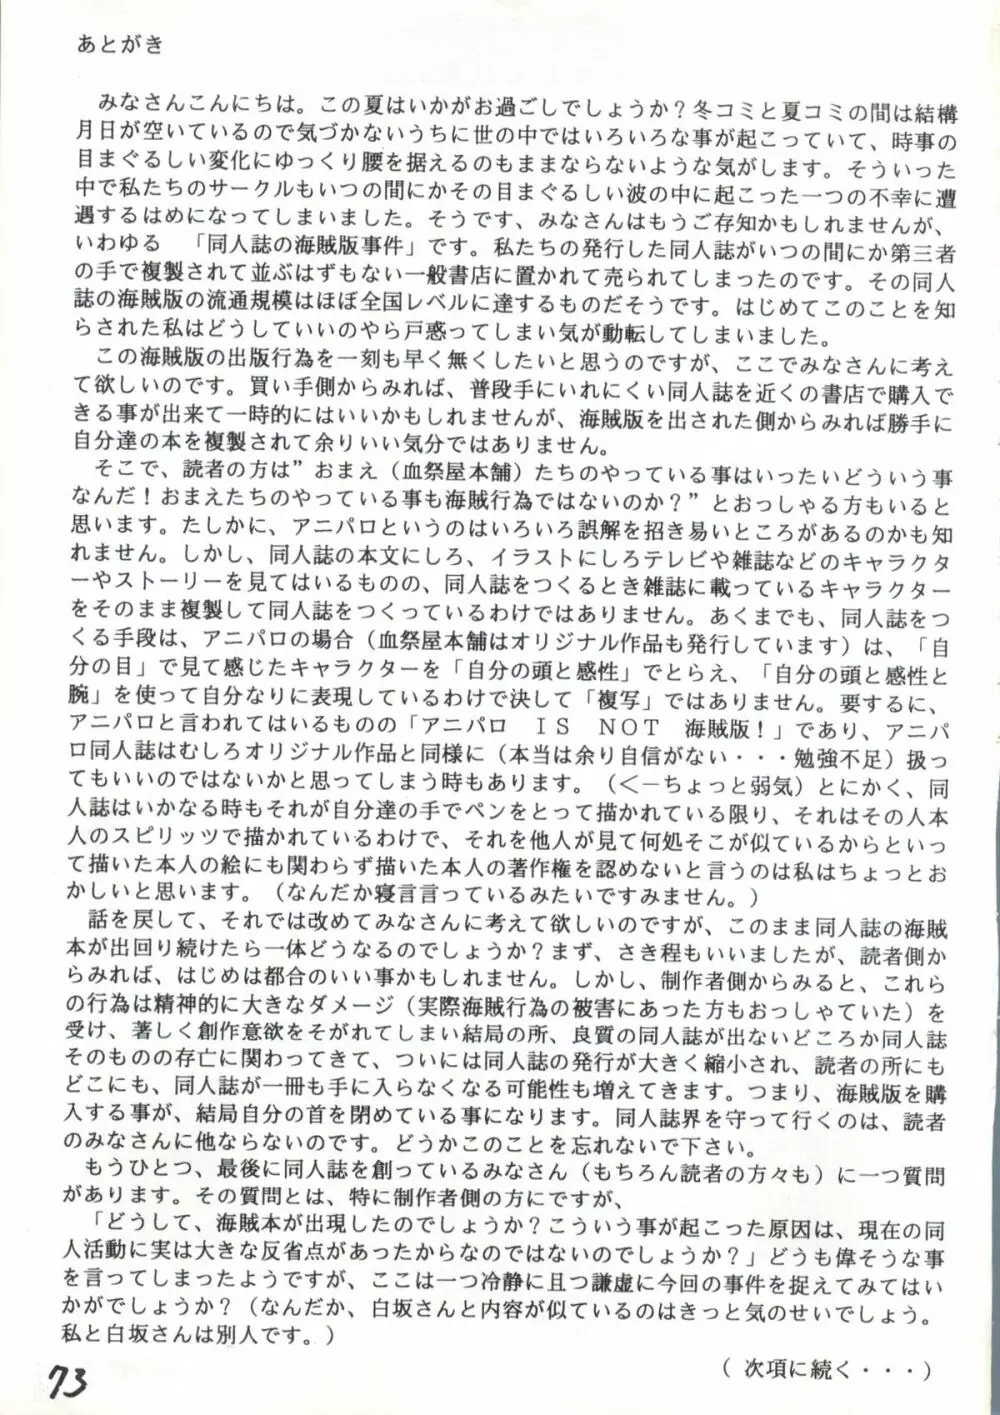 あとがき
みなさんこんにちは。この夏はいかがお過ごしでしょうか?冬コミと夏コミの間は結構
月日が空いているので気づかないうちに世の中ではいろいろな事が起こっていて、時事の
目まぐるしい変化にゆっくり腰を据えるのもままならないような気がします。そういった
中で私たちのサークルもいつの間にかその目まぐるしい波の中に起こった一つの不幸に遭
遇するはめになってしまいました。そうです、みなさんはもうご存知かもしれませんが、
いわゆる 「同人誌の海賊版事件」です。私たちの発行した同人誌がいつの間にか第三者
の手で複製されて並ぶはずもない一般書店に置かれて売られてしまったのです。その同人
誌の海賊版の流通規模はほぼ全国レベルに達するものだそうです。はじめてこのことを知
らされた私はどうしていいのやら戸惑ってしまい気が動転してしまいました。
この海賊版の出版行為を一刻も早く無くしたいと思うのですが、ここでみなさんに考え
て欲しいのです。買い手側からみれば、普段手にいれにくい同人誌を近くの書店で購入で
きる事が出来て一時的にはいいかもしれませんが、海賊版を出された側からみれば勝手に
自分達の本を複製されて余りいい気分ではありません。
そこで、読者の方は”おまえ(血祭屋本舗)たちのやっている事はいったいどういう事
なんだ!おまえたちのやっている事も海賊行為ではないのか?”とおっしゃる方もいると
思います。たしかに、アニパロというのはいろいろ誤解を招き易いところがあるのかも知
れません。しかし、同人誌の本文にしろ、イラストにしろテレビや雑誌などのキャラクタ
ーやストーリーを見てはいるものの、同人誌をつくるとき雑誌に載っているキャラクター
をそのまま複製して同人誌をつくっているわけではありません。あくまでも、同人誌をつ
くる手段は、アニパロの場合(血祭屋本舗はオリジナル作品も発行しています)は、「自
分の目」で見て感じたキャラクターを「自分の頭と感性」でとらえ、「自分の頭と感性と
腕」を使って自分なりに表現しているわけで決して「複写」ではありません。要するに、
アニパロと言われてはいるものの「アニパロ IS NOT 海賊版!」であり、アニパ
ロ同人誌はむしろオリジナル作品と同様に(本当は余り自信がない・・・勉強不足)扱っ
てもいいのではないかと思ってしまう時もあります。(<-ちょっと弱気)とにかく、同
人誌はいかなる時もそれが自分達の手でペンをとって描かれている限り、それはその人本
人のスピリッツで描かれているわけで、それを他人が見て何処そこが似ているからといっ
て描いた本人の絵にも関わらず描いた本人の著作権を認めないと言うのは私はちょっとお
かしいと思います。(なんだか寝言言っているみたいですみません。)
話を戻して、それでは改めてみなさんに考えて欲しいのですが、このまま同人誌の海賊
本が出回り続けたら一体どうなるのでしょうか?まず、さき程もいいましたが、読者側か
らみれば、はじめは都合のいい事かもしれません。しかし、制作者側からみると、これら
の行為は精神的に大きなダメージ(実際海賊行為の被害にあった方もおっしゃていた)を
受け、著しく創作意欲をそがれてしまい結局の所、良質の同人誌が出ないどころか同人誌
そのものの存亡に関わってきて、ついには同人誌の発行が大きく縮小され、読者の所にも
どこにも、同人誌が一冊も手に入らなくなる可能性も増えてきます。つまり、海賊版を購
入する事が、結局自分の首を閉めている事になります。同人誌界を守って行くのは、読者
のみなさんに他ならないのです。どうかこのことを忘れないで下さい。
もうひとつ、最後に同人誌を創っているみなさん(もちろん読者の方々も)に一つ質問
があります。その質問とは、特に制作者側の方にですが、
「どうして、海賊本が出現したのでしょうか?こういう事が起こった原因は、現在の同
人活動に実は大きな反省点があったからなのではないのでしょうか?」どうも偉そうな事
を言ってしまったようですが、ここは一つ冷静に且つ謙虚に今回の事件を捉えてみてはい
かがでしょうか?(なんだか、白坂さんと内容が似ているのはきっと気のせいでしょう。
私と白坂さんは別人です。)
(次項に続く・・・)
73